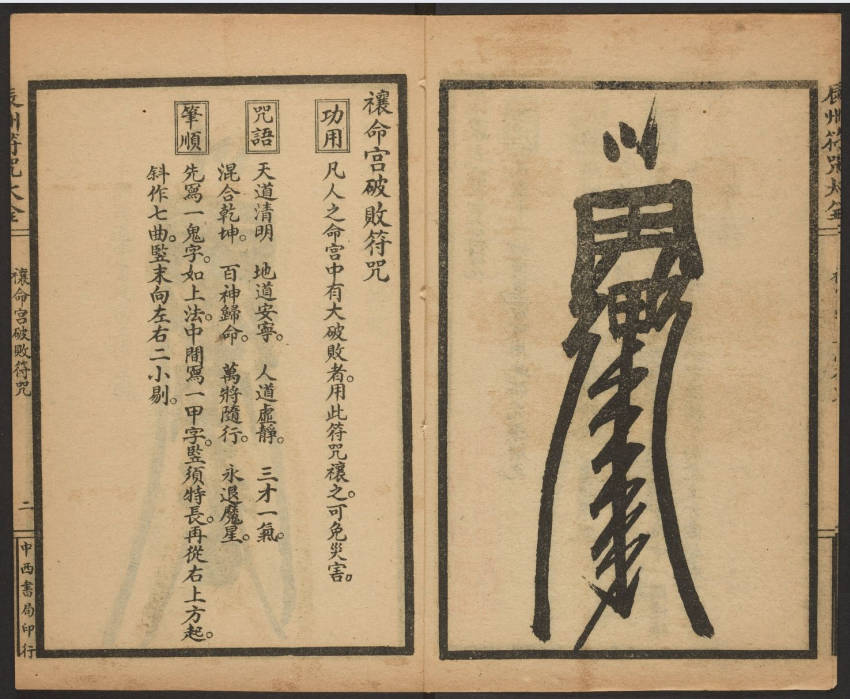 辰州符咒大全
禳命宮破敗符咒
功用
凡人之命宮中有大破敗者。用此符咒禳之。可免災害。
咒語
天道清明　地道安寧。　人道虛靜。　三才一氣。
混合乾坤。　百神歸命。　萬將隨行。　永退魔星。
筆順
先寫一鬼字。如上法。中間寫一甲字。竪須特長。再從右上方起。
斜作七曲。竪末向左右二小剔。
辰州符咒大全
禳命宮破敗符咒
二
中西書局印行